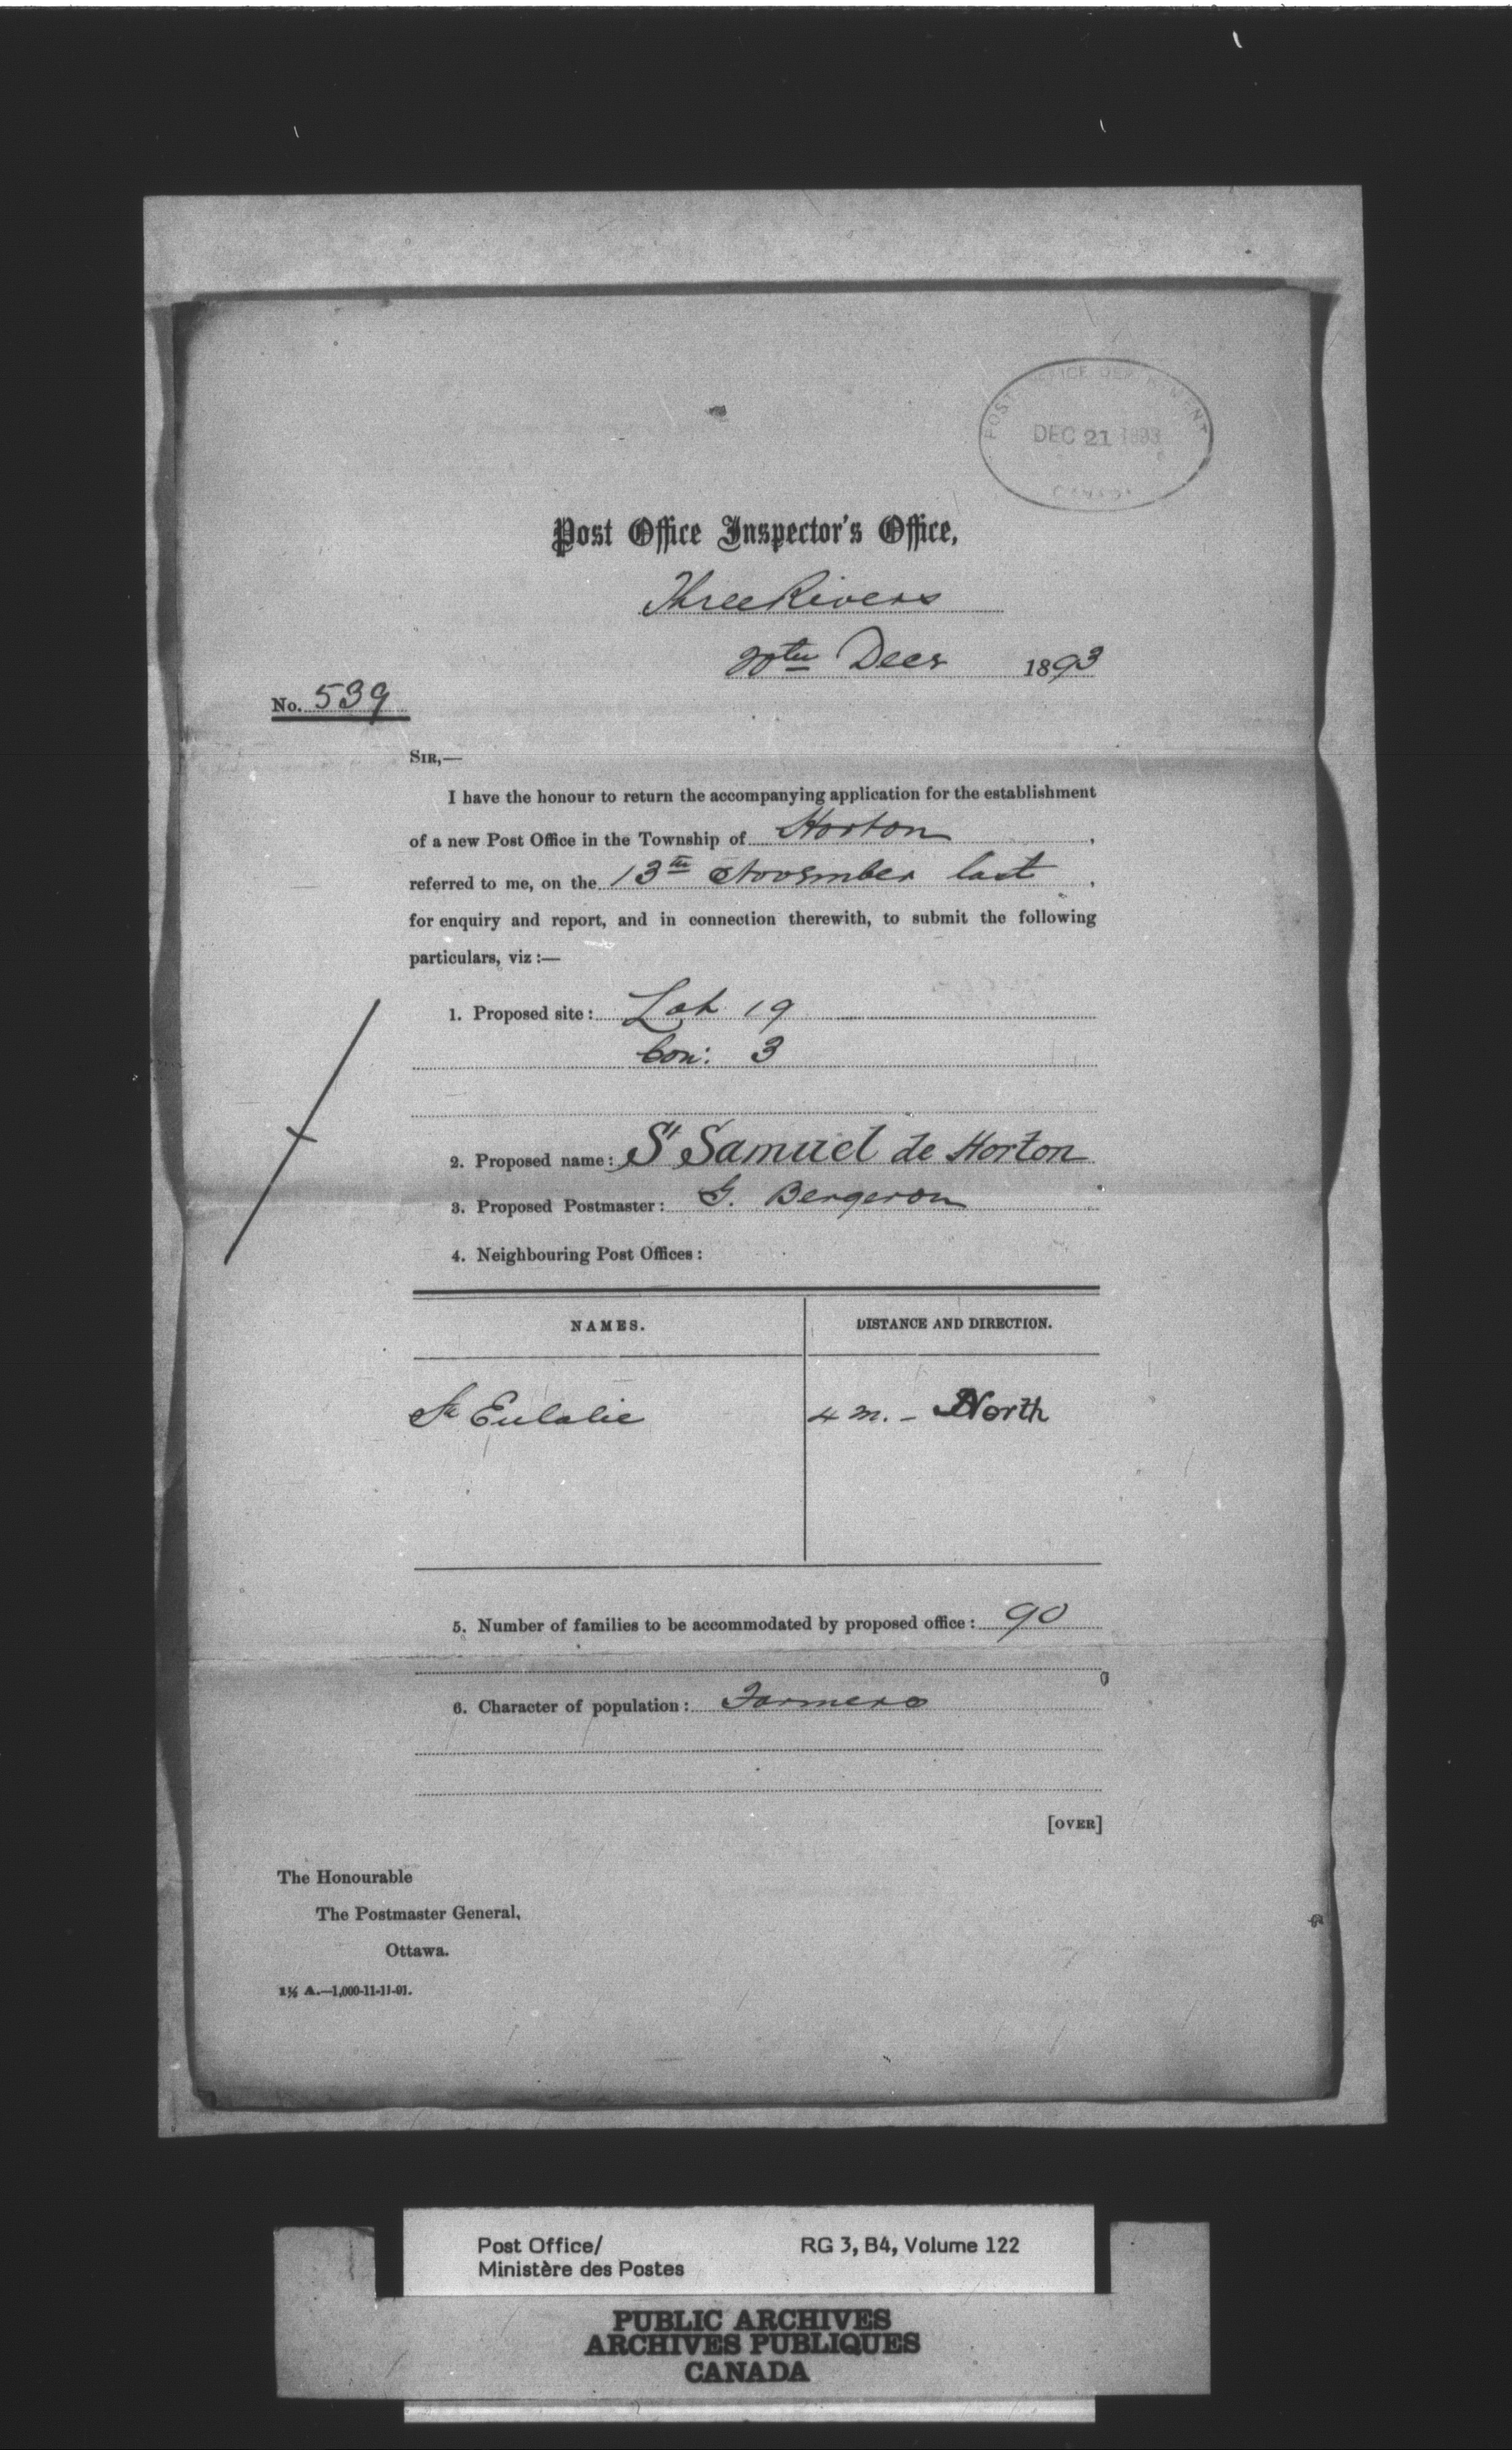 POST OFFICE DEPARTMENT
DEC 21 1893
CANADA
Post Office Inspector's Office,
Three Rivers
20th Decr 1893
No. 539
SIR,—
I have the honour to return the accompanying application for the establishment
of a new Post Office in the Township of Horton,
referred to me, on the 13th November last,
for enquiry and report, and in connection therewith, to submit the following
particulars, viz:—
1. Proposed site: Lot 19
Con: 3
2. Proposed name: St Samuel de Horton
3. Proposed Postmaster: G. Bergeron
4. Neighbouring Post Offices:
NAMES. DISTANCE AND DIRECTION.
Ste Eulalie 4 m. - North
5. Number of families to be accommodated by proposed office: 90
6. Character of population: Farmers
[OVER]
The Honourable
The Postmaster General,
Ottawa.
1½ A.—1,000-11-11-91.
Post Office/ RG 3, B4, Volume 122
Ministère des Postes
PUBLIC ARCHIVES
ARCHIVES PUBLIQUES
CANADA